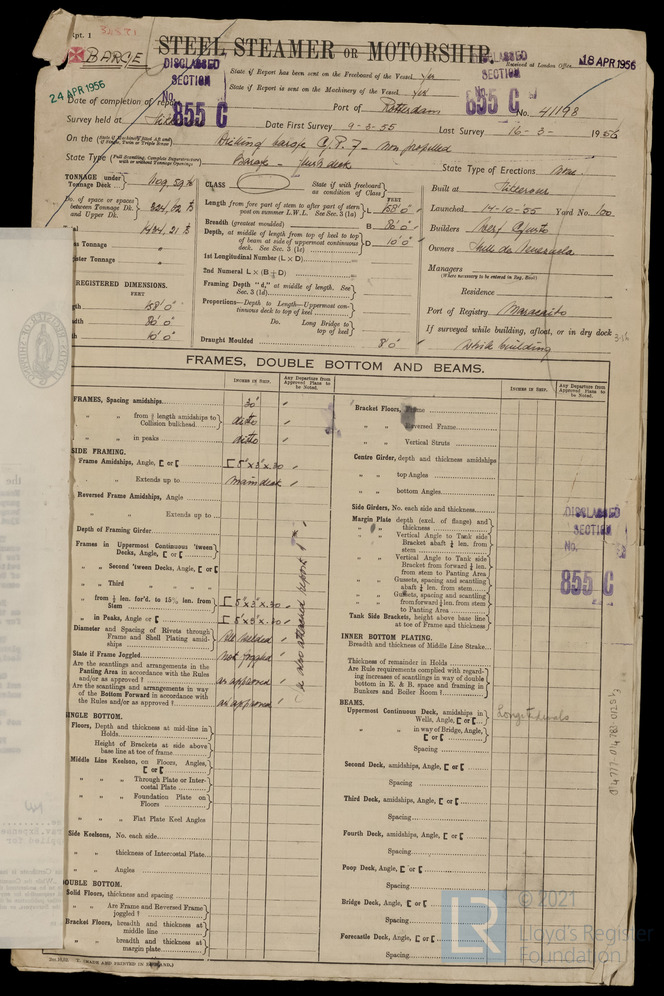 Rpt. 1
BARGE
STEEL STEAMER OR MOTORSHIP
DISCLASSED SECTION No. 855 C
DISCLASSED SECTION No. 855 C
Received at London Office 18 APR 1956
24 APR 1956
State if Report has been sent on the Freeboard of the Vessel Yes
State if Report is sent on the Machinery of the Vessel
Date of completion of report
Port of Rotterdam No. 41198
Survey held at
Date First Survey 9-3-55 Last Survey 16-3-1956
On the (State if Machinery fitted Aft and if Single, Twin or Triple Screw) barge C.P.7 - non propelled
State Type (Full Scantling, Complete Superstructure with or without Tonnage Openings) Barge - flush deck
State Type of Erections None
TONNAGE under Tonnage Deck 1109.59
Do. of space or spaces between Tonnage Dk. and Upper Dk. 324.62
Total 1434.21
Gross Tonnage
Register Tonnage
REGISTERED DIMENSIONS.
FEET
168'0"
Breadth
10'0"
CLASS
State if with freeboard as condition of Class
FEET
Length from fore part of stem to after part of stern post on summer L.W.L. See Sec. 3 (1a) L 168'0"
Breadth (greatest moulded) B
Depth, at middle of length from top of keel to top of beam at side of uppermost continuous deck. See Sec. 3 (1c) D 10'0"
1st Longitudinal Number (L × D)
2nd Numeral L × (B + D)
Framing Depth "d," at middle of length. See Sec. 3 (1d)
Proportions—Depth to Length—Uppermost continuous deck to top of keel
Do. Long Bridge to top of keel
Draught Moulded 8'0"
Built at
Launched 14-10-55 Yard No. 100
Builders
Owners de Venezuela
Managers
(Where necessary to be entered in Reg. Book)
Residence
Port of Registry Maracaibo
If surveyed while building, afloat, or in dry dock
While building
FRAMES, DOUBLE BOTTOM AND BEAMS.
INCHES IN SHIP.
Any Departure from Approved Plans to be Noted.
FRAMES, Spacing amidships 30"
" " from ⅕ length amidships to Collision bulkhead ditto
" " in peaks ditto
SIDE FRAMING.
Frame Amidships, Angle, [ or [ [ 5"x3"x.30
" " Extends up to main deck
Reversed Frame Amidships, Angle
" " " Extends up to
Depth of Framing Girder
Frames in Uppermost Continuous 'tween Decks, Angle, [ or [
" " Second 'tween Decks, Angle, [ or [
" " Third " " "
" from ⅕ len. for'd. to 15% len. from Stem [ 5"x3"x.30
" in Peaks, Angle or [ [ 5"x3"x.30
Diameter and Spacing of Rivets through Frame and Shell Plating amidships All welded
State if Frame Joggled not joggled
Are the scantlings and arrangements in the Panting Area in accordance with the Rules and/or as approved ? as approved
Are the scantlings and arrangements in way of the Bottom Forward in accordance with the Rules and/or as approved ? as approved
see also attached report 8m
SINGLE BOTTOM.
Floors, Depth and thickness at mid-line in Holds
Height of Brackets at side above base line at toe of frame
Middle Line Keelson, on Floors, Angles, [ or [
" " " Through Plate or Intercostal Plate
" " " Foundation Plate on Floors
" " " Flat Plate Keel Angles
Side Keelsons, No. each side
" " thickness of Intercostal Plate
" " Angles
DOUBLE BOTTOM.
Solid Floors, thickness and spacing
" " Are Frame and Reversed Frame joggled ?
Bracket Floors, breadth and thickness at middle line
" " breadth and thickness at margin plate
Bracket Floors, Frame
" " Reversed Frame
" " Vertical Struts
Centre Girder, depth and thickness amidships
" " top Angles
" " bottom Angles
Side Girders, No. each side and thickness
Margin Plate depth (excl. of flange) and thickness
" " Vertical Angle to Tank side Bracket abaft ⅕ len. from stem
" " Vertical Angle to Tank side Bracket from forward ⅕ len. from stem to Panting Area
" " Gussets, spacing and scantling abaft ⅕ len. from stem
" " Gussets, spacing and scantling from forward ⅕ len. from stem to Panting Area
Tank Side Brackets, height above base line at toe of Frame and thickness
INNER BOTTOM PLATING.
Breadth and thickness of Middle Line Strake
Thickness of remainder in Holds
Are Rule requirements complied with regarding increases of scantlings in way of double bottom in E. & B. space and framing in Bunkers and Boiler Room ?
BEAMS.
Uppermost Continuous Deck, amidships in Wells, Angle, [ or [ Longitudinals
" " in way of Bridge, Angle, [ or [
Spacing
Second Deck, amidships, Angle, [ or [
Spacing
Third Deck, amidships, Angle, [ or [
Spacing
Fourth Deck, amidships, Angle, [ or [
Spacing
Poop Deck, Angle, [ or [
Spacing
Bridge Deck, Angle, [ or [
Spacing
Forecastle Deck, Angle, [ or [
Spacing
DISCLASSED SECTION No. 855 C
(MADE AND PRINTED IN ENGLAND.)
LR
© 2021
Lloyd's Register
Foundation